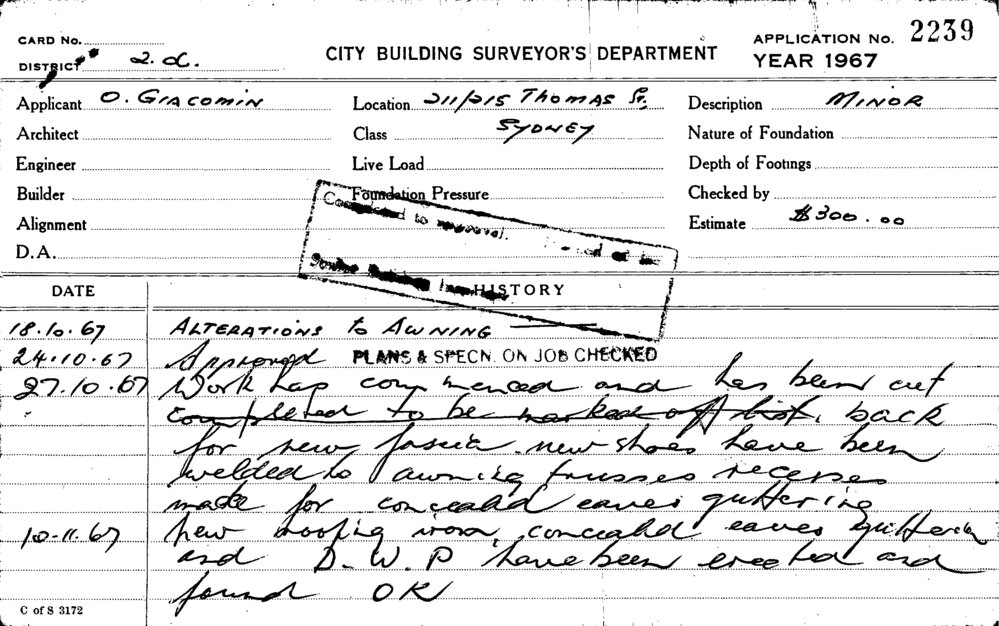 CARD No.
DISTRICT 2.d.
CITY BUILDING SURVEYOR'S DEPARTMENT
APPLICATION No. 2239
YEAR 1967
Applicant O. GIACOMIN
Location 211/215 THOMAS St.
Description MINOR
Architect
Class SYDNEY
Nature of Foundation
Engineer
Live Load
Depth of Footings
Builder
Foundation Pressure
Checked by
Alignment
Estimate $300.00
D.A.
Completed to approval.
DATE
HISTORY
18.10.67 ALTERATIONS to AWNING
24.10.67 Approved PLANS & SPECN. ON JOB CHECKED
27.10.67 Work has commenced and has been cut
completed to be marked off list. back
for new fascia new shoes have been
welded to awning trusses recesses
made for conceald eaves guttering
10.11.67 New roofing iron, conceald eaves guttering
and D.W.P have been erected and
found OK
C of S 3172